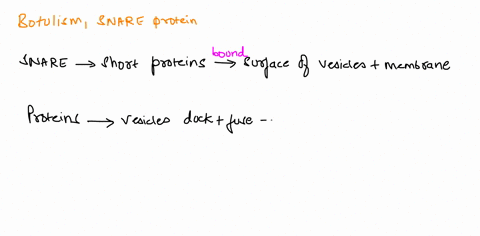 Botulism, SNARE protein
bound
SNARE → short proteins → surface of vesicles + membrane
Proteins → vesicles dock + fuse -